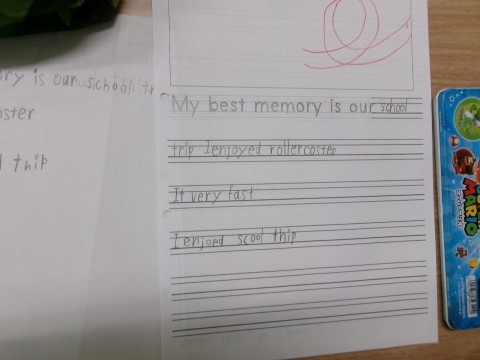 ory is our sichool tr
oster
thip
My best memory is our school
trip I enjoyed rollercoster
It very fast
I enjoed scool thip
MARIO